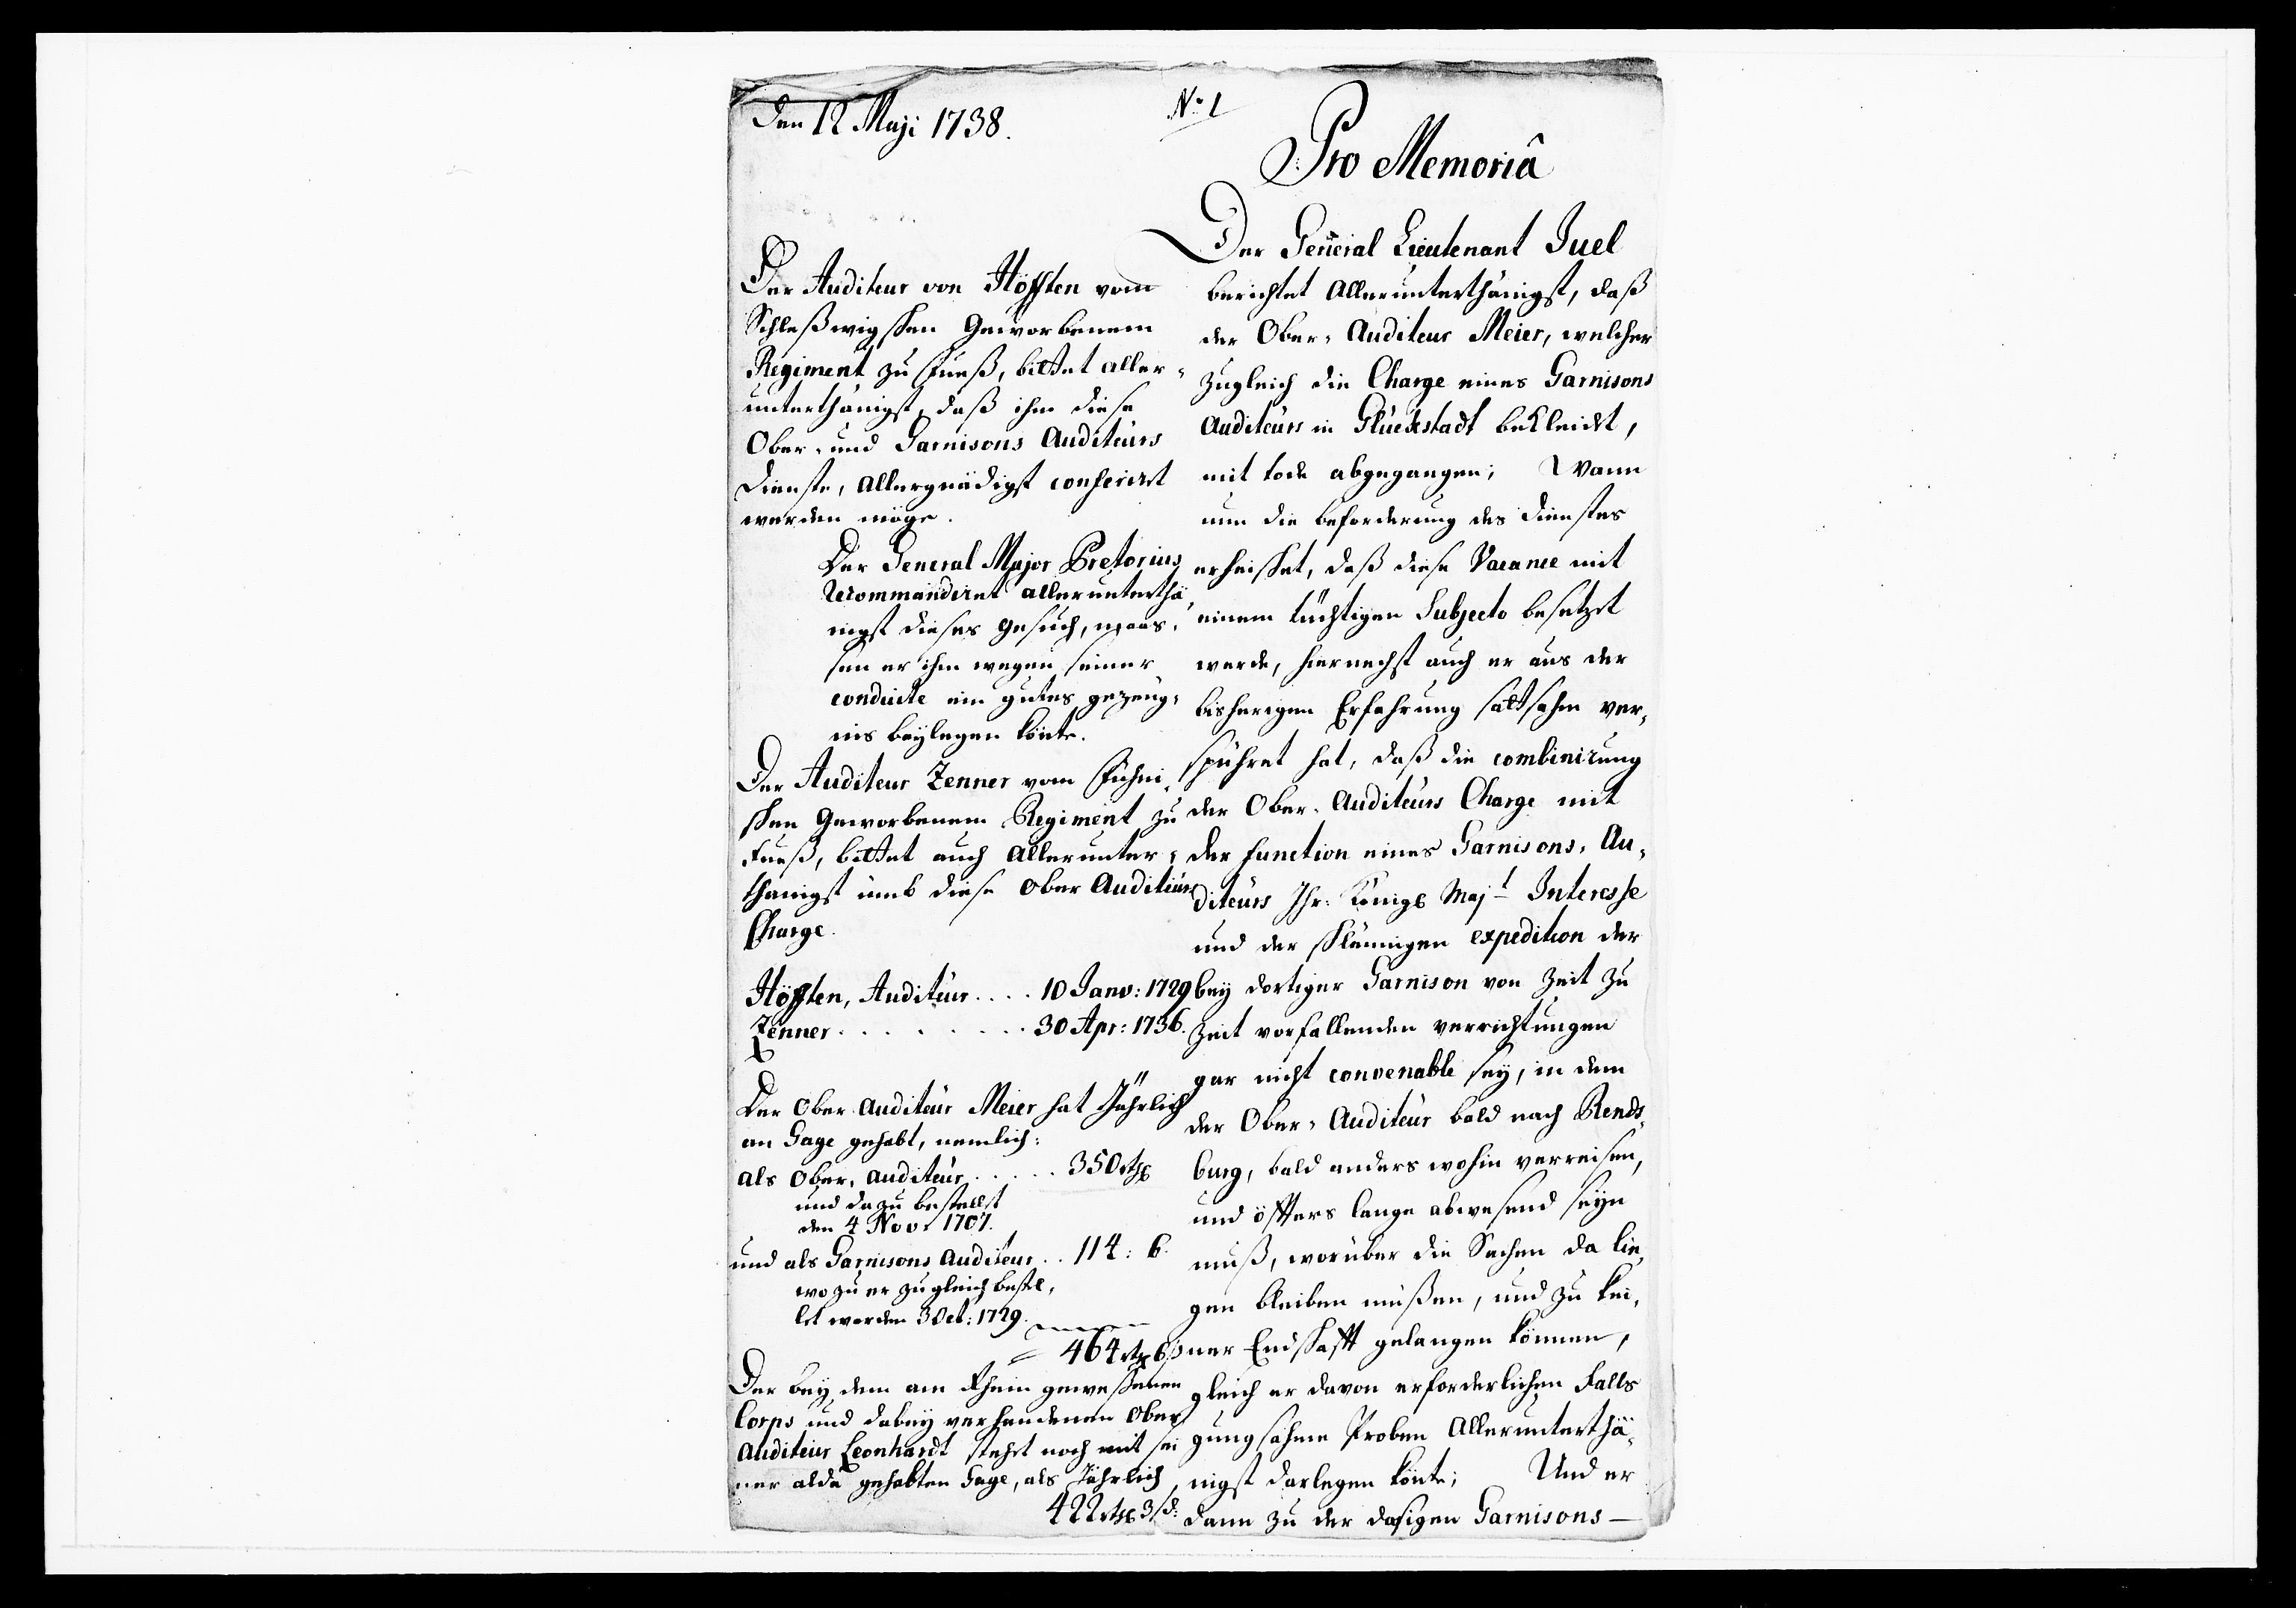 Den 12 Maji 1738.
No 1
Pro Memoriâ
Der Auditeur von Höfften vom
Schleßwigschen Geworbenem
Regiment zu Fueß, bittet aller-
unterthänigst, daß ihm diese
Ober- und Garnisons Auditeurs
Dienste, Allergnädigst conferiret
werden möge.
Der General Major Pretorius
recommandiret allerunterthä-
nigst dieses Gesuch, maas-
sen er ihm wegen seiner
conduite ein gutes gezeug-
nis beylegen könte.
Der Auditeur Zenner vom Fühni-
schen Geworbenem Regiment zu
Fueß, bittet auch Allerunter-
thänigst umb diese Ober Auditeurs
Charge.
Höfften, Auditeur .... 10 Janv: 1729
Zenner ......... 30 Apr: 1736.
Der Ober Auditeur Meier hat Jährlich
an Gage gehabt, nemlich:
als Ober-Auditeur ..... 350 rthl
und dazu bestellt
den 4 Nov: 1707.
und als Garnisons Auditeur .. 114: 6.
wozu er zugleich bestel-
let worden 3 Oct: 1729.
464 rthl 6 ß
Der bey dem am Rhein gewesenen
Corps und dabey verhandenen Ober
Auditeur Leonhardt stehet noch mit sei
ner alda gehabten Gage, als Jährlich
422 rthl 3 ß
Der General Lieutenant Juel
berichtet Allerunterthänigst, daß
der Ober-Auditeur Meier, welcher
zugleich die Charge eines Garnisons
Auditeurs in Glückstadt bekleidt,
mit tode abgegangen; Wann
nun die beforderung des Dienstes
erheischet, daß diese Vacance mit
einem tüchtigen Subjecto besetzet
werde, hiernechst auch er aus der
bisherigen Erfahrung sattsahm ver-
spühret hat, daß die combinirung
der Ober-Auditeurs Charge mit
der function eines Garnisons-Au-
diteurs Ihr: Königl Majt Interesse
und der schleunigen expedition der
bey dortiger Garnison von Zeit zu
Zeit vorfallenden verrichtungen
gar nicht convenable sey, in dem
der Ober-Auditeur bald nach Rends-
burg, bald anders wohin verreisen,
und öffters lange abwesend seyn
muß, worüber die Sachen da lie-
gen bleiben müßen, und zu kei-
ner Endschafft gelangen können,
gleich er davon erforderlichen Falls
gungsahme Proben Allerunterthä-
nigst darlegen könte; Und er
dann zu der dasigen Garnisons-